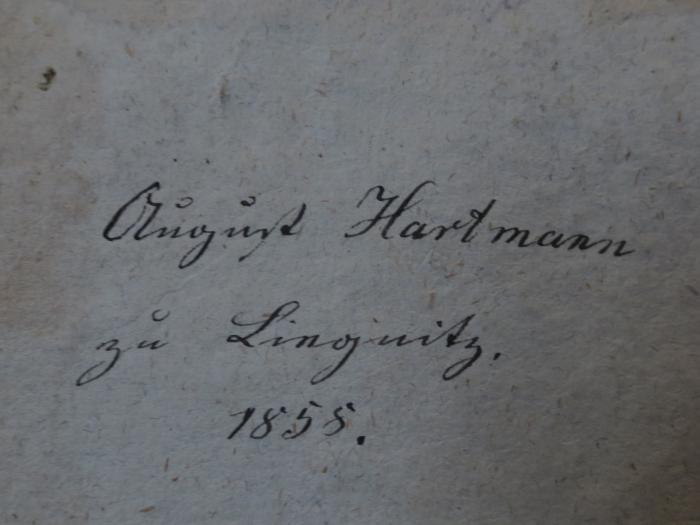 August Hartmann
zu Liegnitz.
1858.